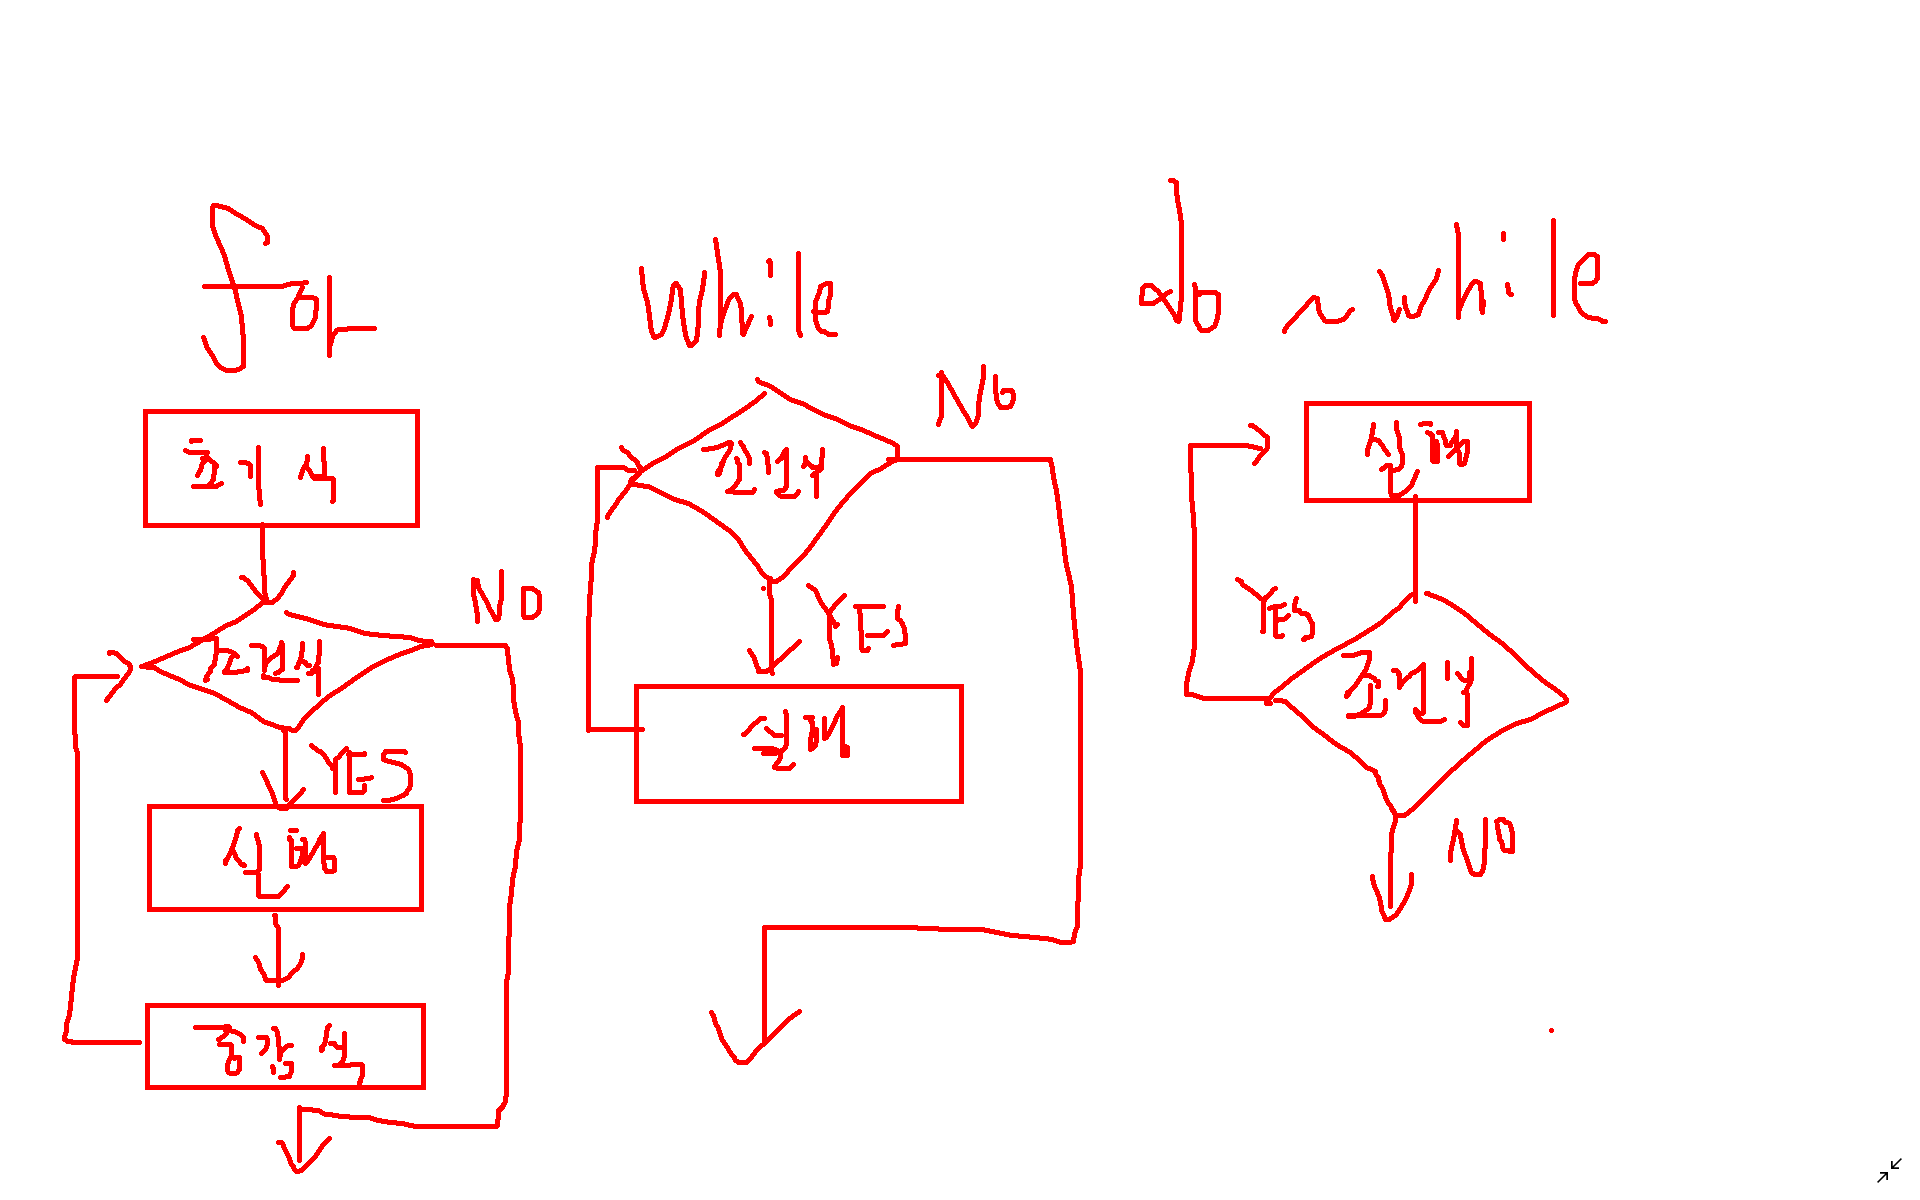 for
초기식
조건식
NO
YES
실행
증감식
while
조건식
NO
YES
실행
do ~ while
실행
YES
조건식
NO